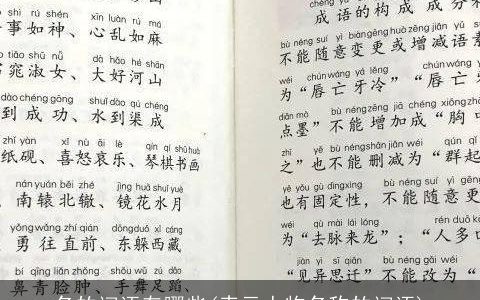 shì rú shén xīn luàn rú má
事如神、心乱如麻
tiǎo shū nǚ dà hǎo hé shān
窕淑女、大好河山
dào chéng gōng shuǐ dào qú chéng
到成功、水到渠成
zhǐ yàn xǐ nù āi lè qín qí shū huà
纸砚、喜怒哀乐、琴棋书画
nán yuán běi zhé jìng huā shuǐ yuè
南辕北辙、镜花水月
yǒng wǎng zhí qián dōng duǒ xī cáng
勇往直前、东躲西藏
bí qīng liǎn zhǒng shǒu wǔ zú dǎo
鼻青脸肿、手舞足蹈、
成语的构成成分
bù néng suí yì biàn gēng huò zēng jiǎn yǔ sù
不能随意变更或增减语素
wéi chún wáng yá lěng chún wáng
为“唇亡牙冷”“唇亡
diǎn mò bù néng zēng jiā chéng xiōng
点墨”不能增加成“胸
zhī yě bù néng shān jiǎn wéi qún qǐ
之”也不能删减为“群起
yě yǒu gù dìng xìng bù néng suí yì gēng
也有固定性，不能随意更
wéi qù mài lái lóng rén duō
为“去脉来龙”；“人多
jiàn yì sī qiān bù néng gǎi wéi
“见异思迁”不能改为“